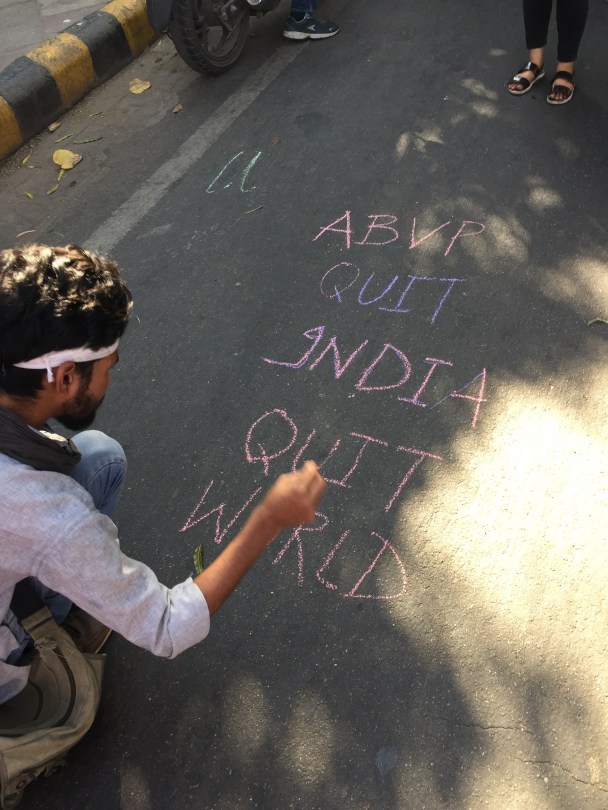 ABVP
QUIT
INDIA
QUIT
WORLD